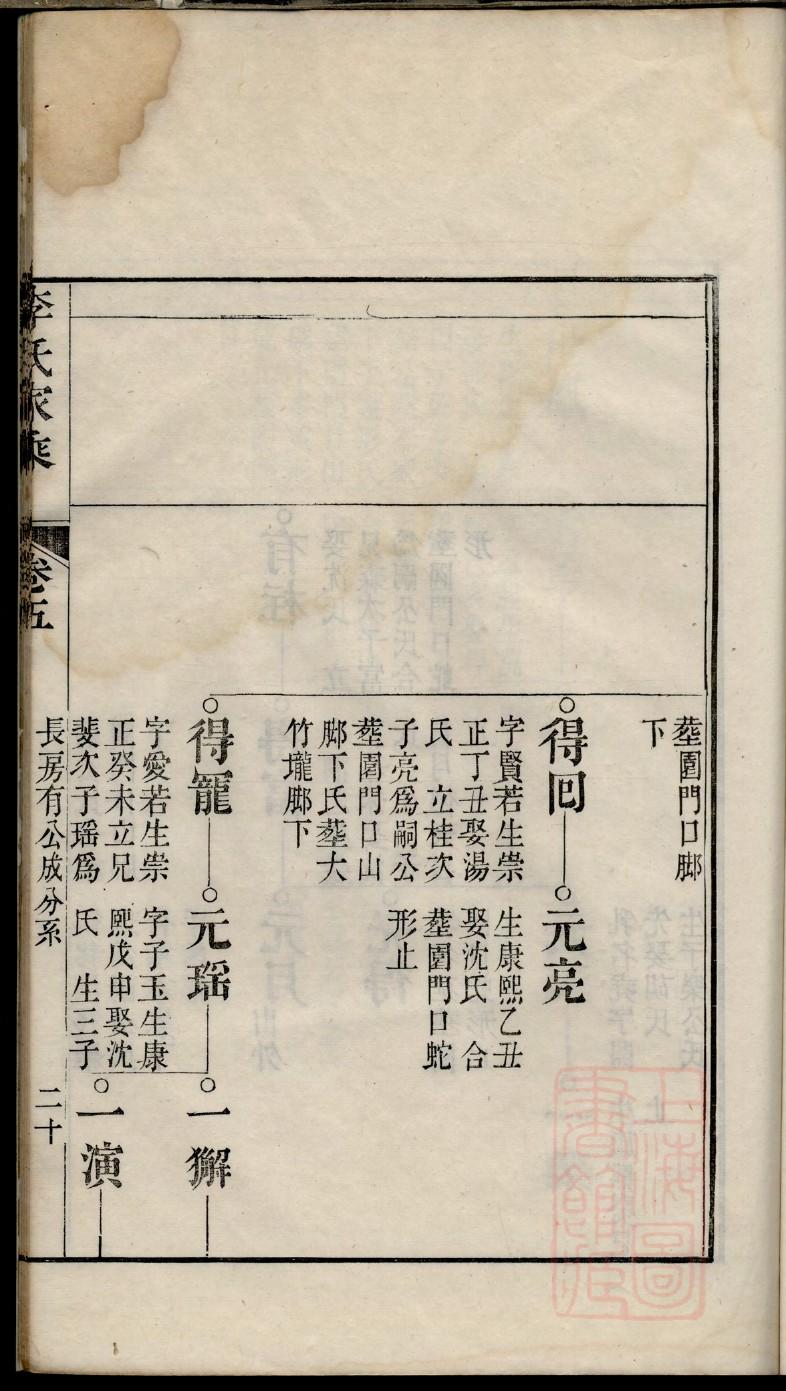 塟園門口脚
下
得回
字賢若生崇
正丁丑娶湯
氏　立桂次
子亮爲嗣公
塟園門口山
脚下氏塟大
竹壠脚下
元亮
生康熙乙丑
娶沈氏　合
塟園門口蛇
形止
得寵
字愛若生崇
正癸未立兄
斐次子瑶爲
元瑶
字子玉生康
熙戊申娶沈
氏　生三子
一獬
一演
李氏家乘
卷五
長房有公成分系
二十
上海圖書館藏